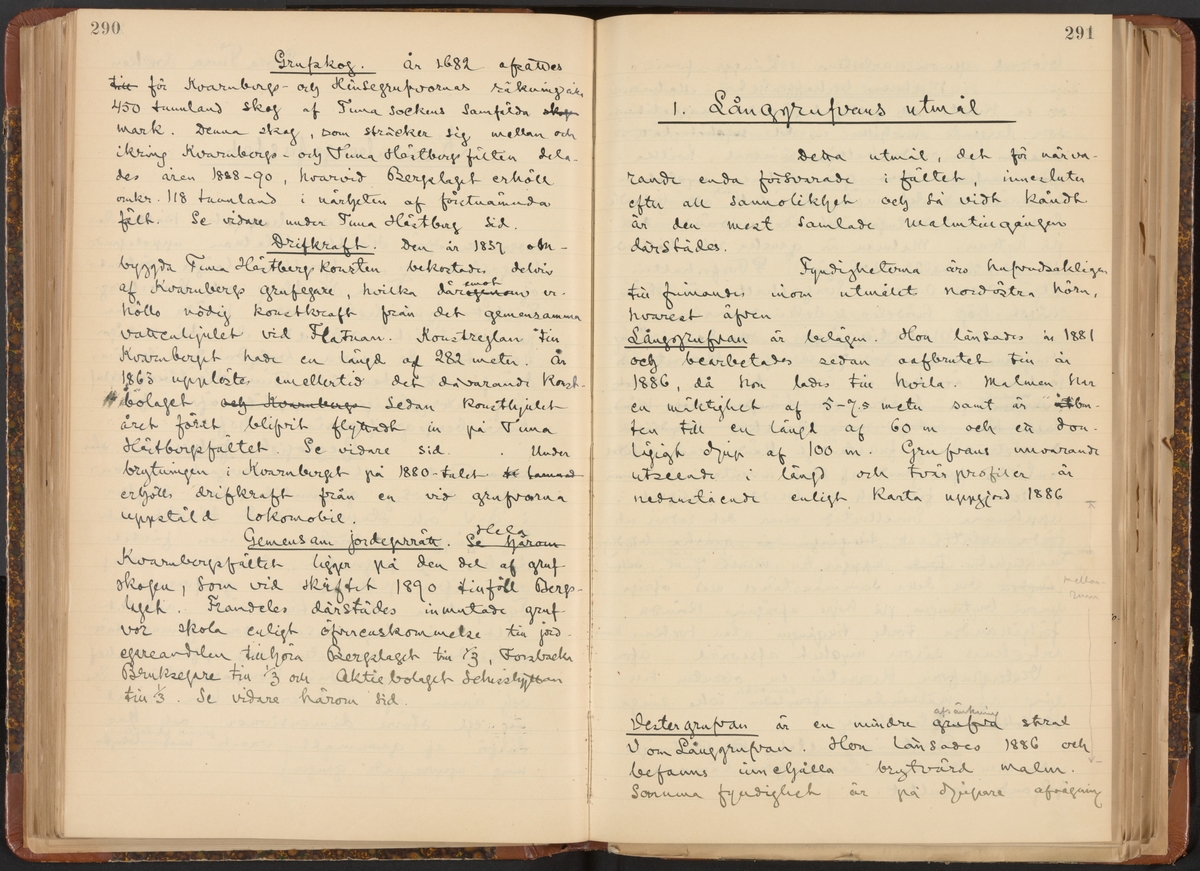 290
Grufskog. År 1682 afsattes
till för Kvarnbergs- och Hinsegrufvornas räkning
450 tunnland skog af Tuna sockens samfälda skogs
mark. Denna skog, som sträcker sig mellan och
ikring Kvarnbergs- och Tuna Hästbergsfälten dela-
des åren 1888-90, hvarvid Bergslaget erhöll
omkr. 118 tunnland i närheten af förstnämnda
fält. Se vidare under Tuna Hästberg sid.
Drifkraft. Den år 1857 om-
byggda Tuna Hästbergskonsten bekostades delvis
af Kvarnbergs grufegare, hvilka däremot er-
höllo nödig konstkraft från det gemensamma
vattenhjulet vid Flatnan. Konstreglan till
Kvarnberget hade en längd af 282 meter. År
1863 upplöstes emellertid det dåvarande konst-
bolaget och Kvarnbergs sedan konsthjulet
året förut blifvit flyttadt in på Tuna
Hästbergsfältet. Se vidare sid. . Under
brytningen i Kvarnberget på 1880-talet
erhölls drifkraft från en vid grufvorna
uppstäld lokomobil.
Gemensam jordegarrätt. Se härom Hela
Kvarnbergsfältet ligger på den del af gruf
skogen, som vid skiftet 1890 tillföll Bergs-
laget. Framdeles därstädes inmutade gruf
vor skola enligt öfverenskommelse till jord-
egareandelen tillhöra Bergslaget till 1/3, Forsbacka
Bruksegare till 1/3 och Aktiebolaget Schisshyttan
till 1/3. Se vidare härom sid.
291
1. Långgrufvans utmål
Detta utmål, det för närva-
rande enda försvarade i fältet, innesluter
efter all sannolikhet och så vidt kändt
är den mest samlade malmtillgången
därstädes.
Fyndigheterna äro hufvudsakligen
till finnandes inom utmålet nordöstra hörn,
hvarest äfven
Långgrufvan är belägen. Hon länsades år 1881
och bearbetades sedan oafbrutet till år
1886, då hon lades till hvila. Malmen har
en mäktighet af 5-7.5 meter samt är afbru-
ten till en längd af 60 m och ett don-
lägigt djup af 100 m. Grufvans nuvarande
utseende i längd och tvärprofiler är
nedanstående enligt karta uppgjord 1886
mellan-
rum
Vestergrufvan är en mindre grufva afsänkning strax
V om Långgrufvan. Hon länsades 1886 och
befanns innehålla brytvärd malm.
Samma fyndighet är på djupare afvägning